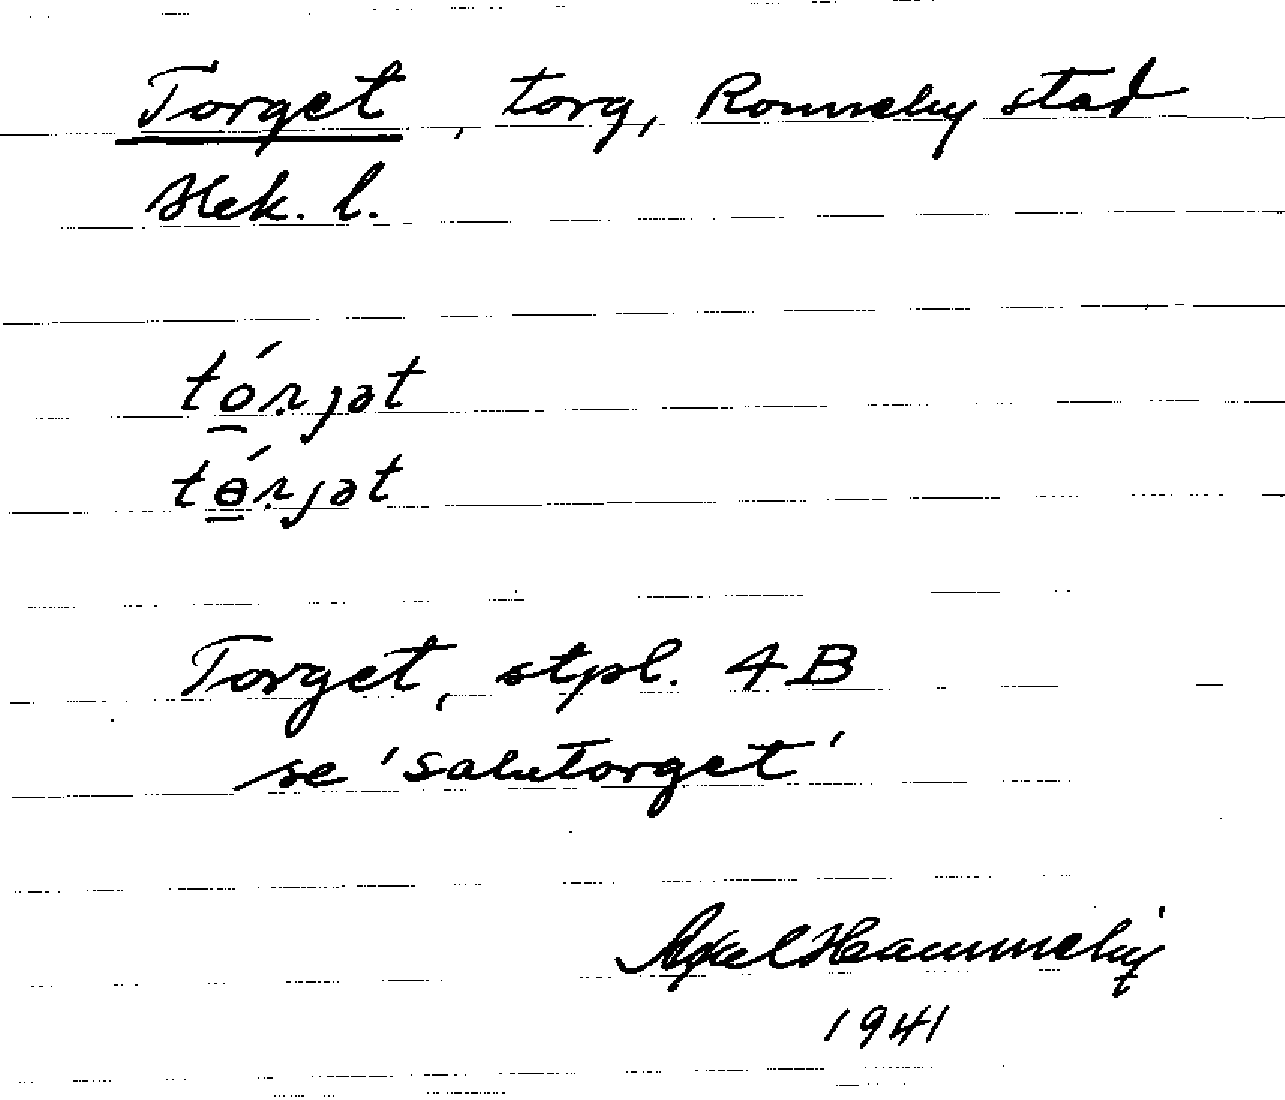 Torget, torg, Ronneby stad
Blek. l.
tó̱rjət
tɵ̱́rjət
Torget, stpl. 4B
se 'Salutorget'
Axel Hammeby
1941